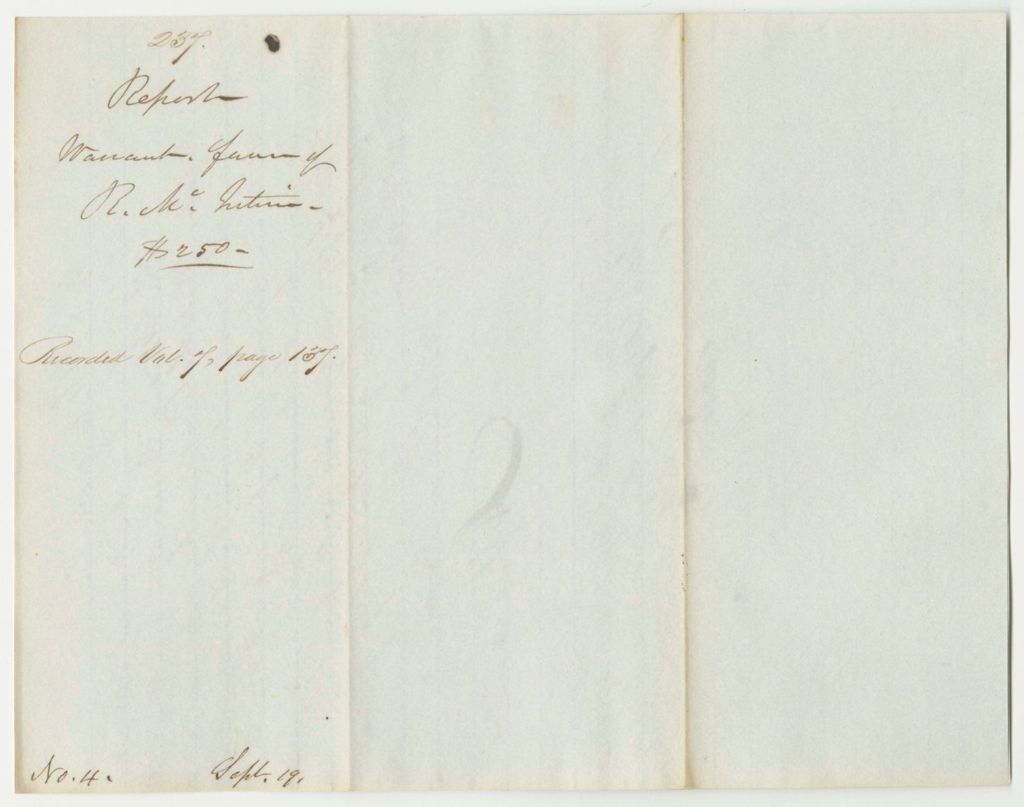 237.
Report
Warrant. favor of
R. Mc. Intire -
$250 -
Recorded Vol. 7, page 137.
2
No. 4. Sept. 19.